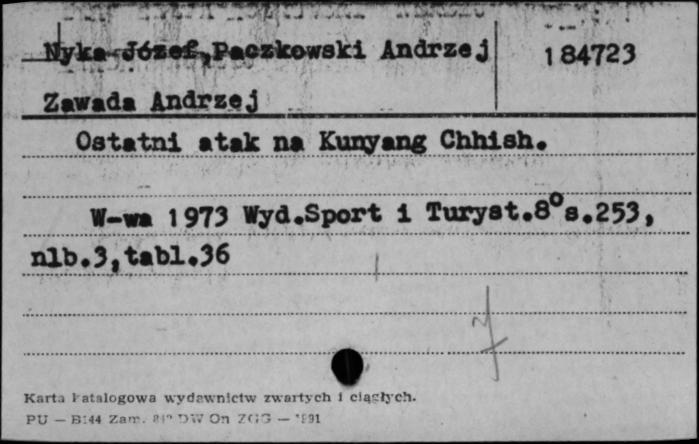 Nyka Józef, Paczkowski Andrzej 184723
Zawada Andrzej
Ostatni atak na Kunyang Chhish.
W-wa 1973 Wyd.Sport i Turyst.8°s.253,
nlb.3,tabl.36
Karta katalogowa wydawnictw zwartych i ciągłych.
PU — B144 Zam. DW On ZGG —